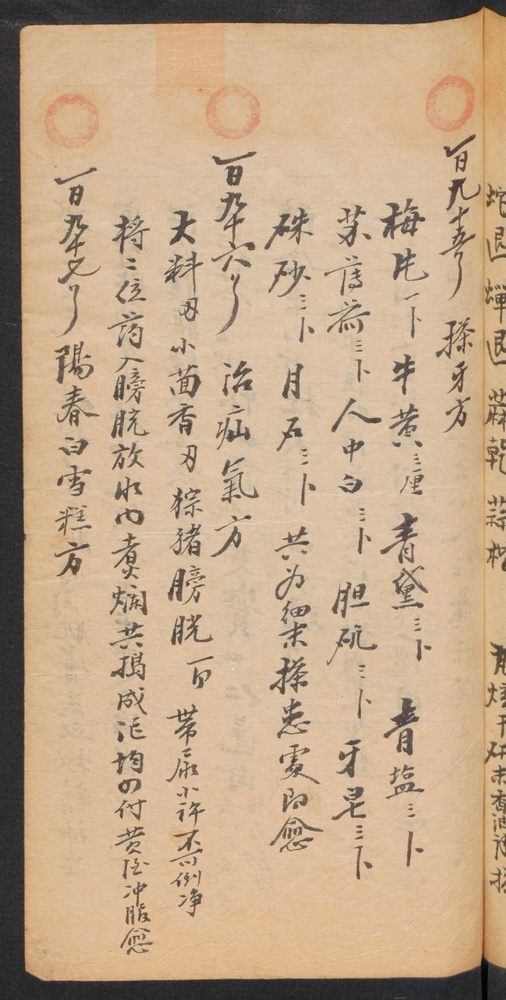 蛇退 蟬退 蒜
研末香油
一百九十五 搽牙方
梅片一卜 牛黃三厘 青黛三卜 青塩三卜
薄荷三卜 人中白三卜 胆矾三卜 牙皂三卜
硃砂三卜 月石三卜 共为細末搽患處即愈
一百九十六 治疝氣方
大料 小茴香 猪膀胱一百 帶尿小許不可倒净
将二位药入膀胱放水内煮爛共搗成泥均四付黃酒冲服愈
一百九十七 陽春白雪糕方